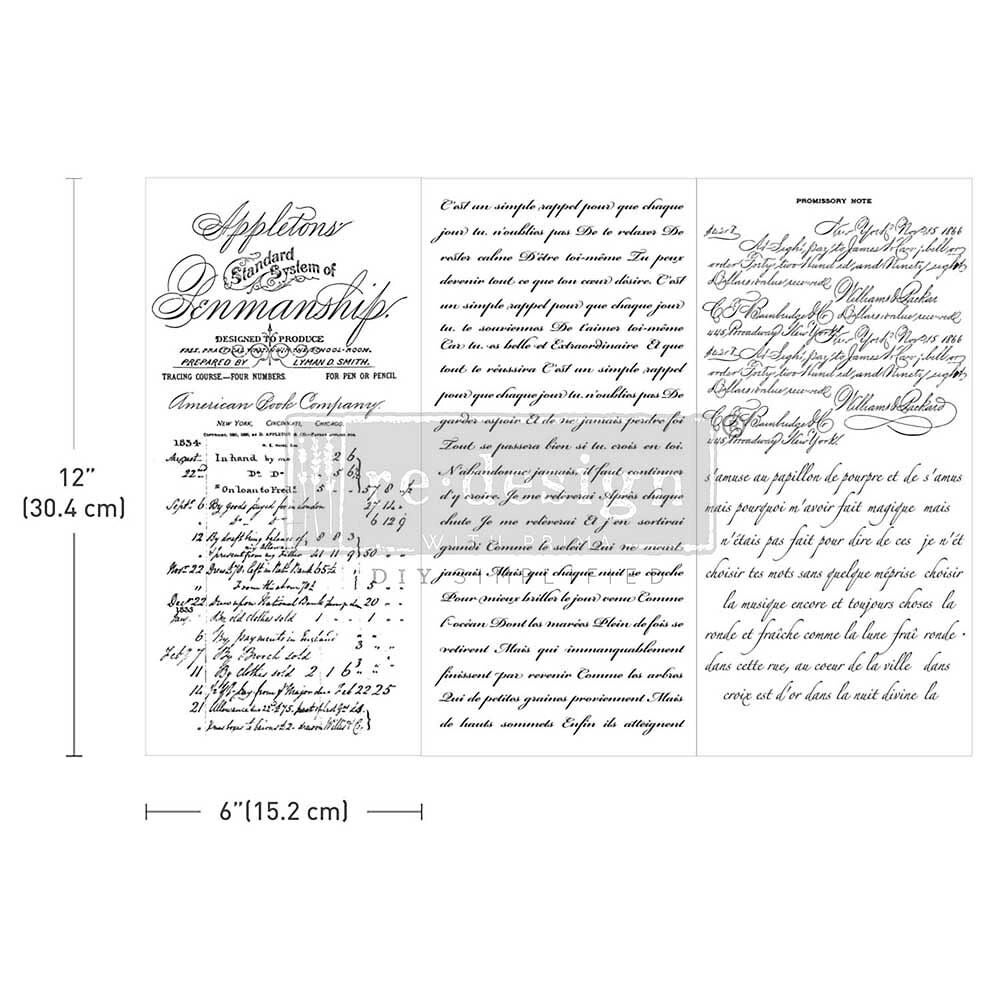 Appletons'
Standard
System of
Penmanship.
DESIGNED TO PRODUCE
FREE, PRACTICAL
SCHOOL-ROOM.
PREPARED BY LYMAN D. SMITH.
TRACING COURSE—FOUR NUMBERS. FOR PEN OR PENCIL
American Book Company.
NEW YORK, CINCINNATI, CHICAGO.
1834
August In hand by me 2 6
22nd Do Do 5 6
"On loan to Fred 5 57 8
Sept 6 By goods payed for in London 27 14
6 12 9
12 By draft being balance of 8 8 3
present from my Father 41 11 9 50
Nov 22
1 5
Decr 22 Drew upon National Bank 20
1835
Jany Do old clothes sold 1 1
6 By payments in England
Feb 7 7 By Brooch sold 3
11 By clothes sold 2 1 6
14 Feb 22 25
21 Allowance
C'est un simple rappel pour que chaque
jour tu. n'oublies pas De te relaxer De
rester calme D'être toi-même Tu peux
devenir tout ce que ton cœur désire. C'est
un simple rappel pour que chaque jour
tu. te souviennes De t'aimer toi-même
Car tu. es belle et Extraordinaire Et que
tout te réussira C'est un simple rappel
pour que chaque jour tu. n'oublies pas De
garder espoir Et de ne jamais perdre foi
Tout se passera bien si tu. crois en toi.
N'abandonne jamais, il faut continuer
d'y croire. Je me relèverai Après chaque
chute Je me relèverai Et j'en sortirai
grandi Comme le soleil Qui ne meurt
jamais Mais qui chaque nuit se couche
Pour mieux briller le jour venu Comme
l'océan Dont les marées Plein de fois se
retirent Mais qui immanquablement
finissent par revenir Comme les arbres
Qui de petites graines proviennent Mais
de hauts sommets Enfin ils atteignent
PROMISSORY NOTE
New York Nov 15 1866
At Sight, pay to James W Carr, bill or
order Forty two Hundred, and Ninety eight
Dollars value received
Williams & Packard
C. F. Bainbridge & Co Dollars value received
445, Broadway New York New York Nov 15 1866
At Sight, pay to James W Carr, bill or
order Forty, two Hundred, and Ninety, eight
Dollars value received
Williams & Packard
C. F. Bainbridge & Co
445, Broadway New York
s'amuse au papillon de pourpre et de s'amus
mais pourquoi m'avoir fait magique mais
n'étais pas fait pour dire de ces je n'ét
choisir tes mots sans quelque méprise choisir
la musique encore et toujours choses la
ronde et fraîche comme la lune fraî ronde ·
dans cette rue, au coeur de la ville dans
croix est d'or dans la nuit divine la
re·design
WITH PRIMA
DIY SIMPLIFIED
12"
(30.4 cm)
6"(15.2 cm)